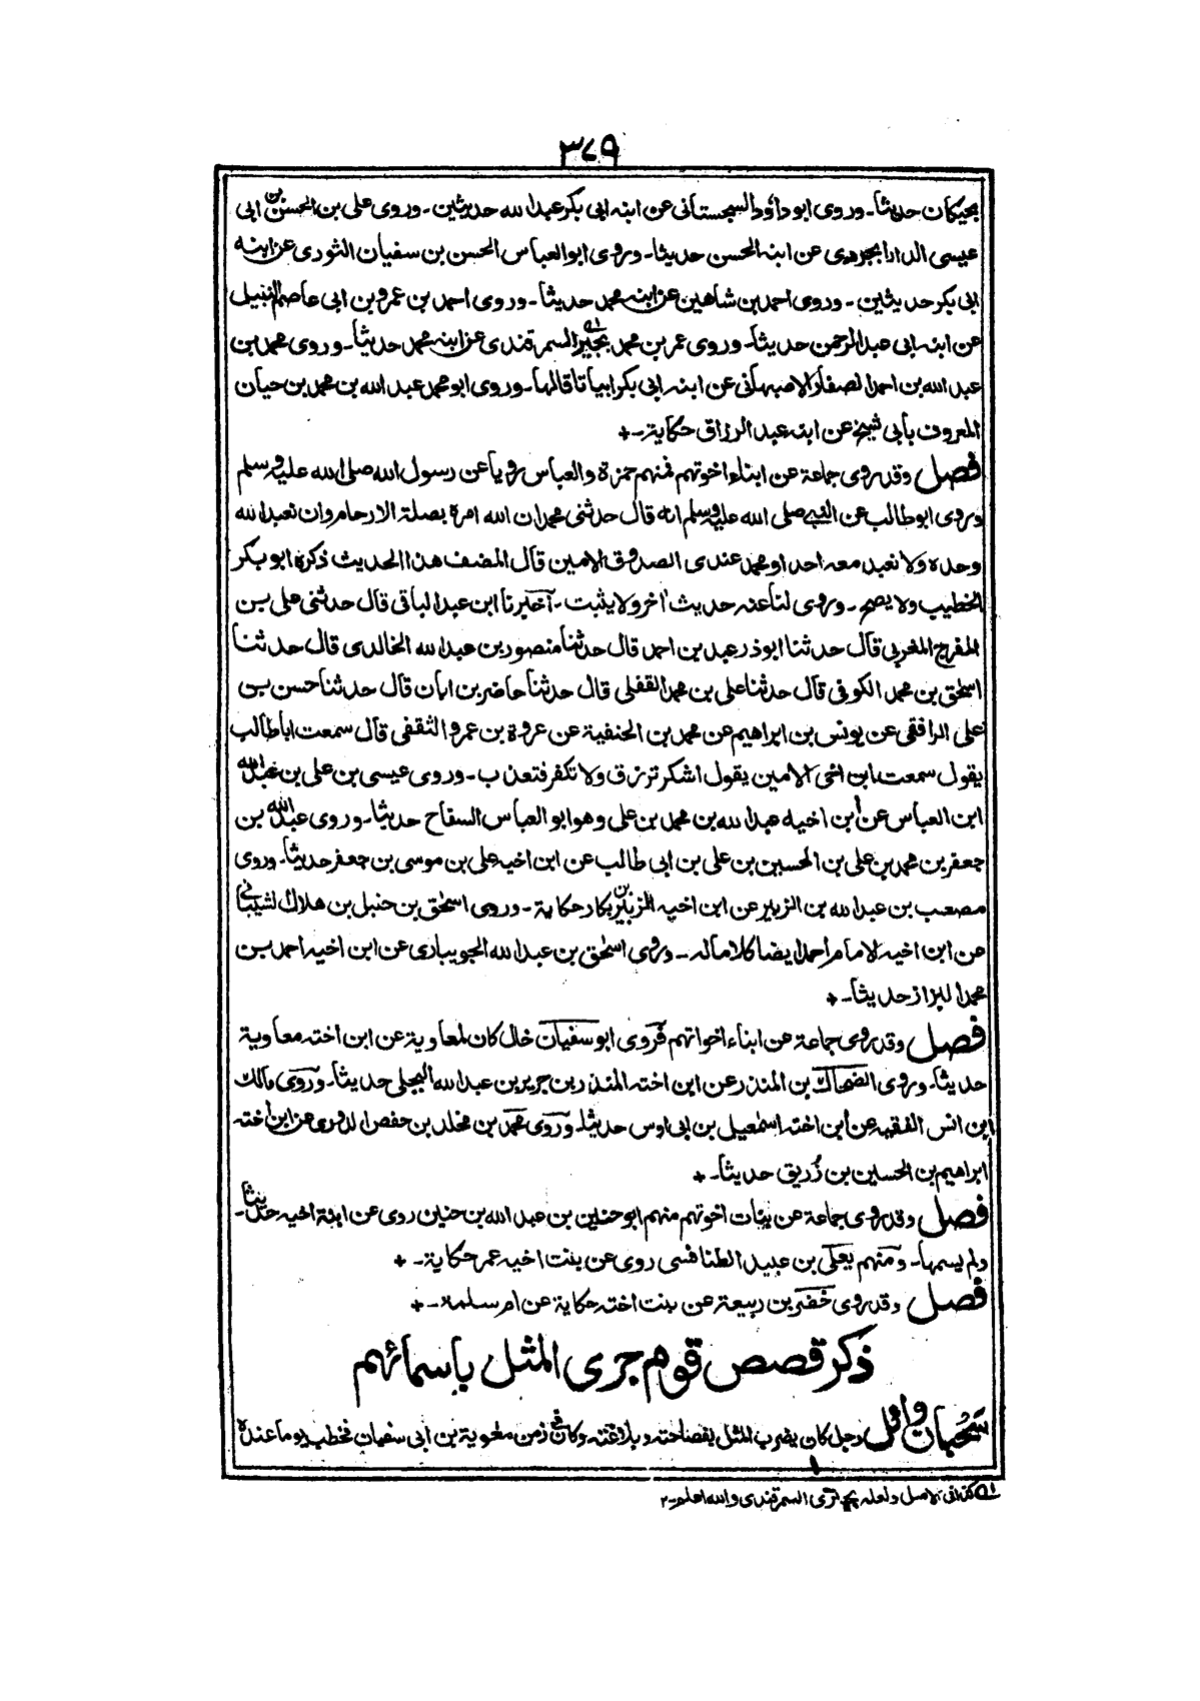 ٣٧٩
بحيكان حديثا۔ وروى ابو داؤد السجستانى عن ابنه ابى بكر عبد الله حديثين۔ وروى على بن الحسن بن ابى
عيسى الدارابجردى عن ابنه الحسن حديثا۔ وروى ابو العباس الحسن بن سفيان الثورى عن ابنه
ابى بكر حديثين۔ وروى احمد بن شاهين عن ابنه محمد حديثا۔ وروى احمد بن عمرو بن ابى عاصم النبيل
عن ابنه ابى عبد الرحمن حديثا۔ وروى عمر بن محمد بجير السمرقندى عن ابنه محمد حديثا۔ وروى محمد بن
عبد الله بن احمد الصفار الاصبهانى عن ابنه ابى بكر ابياتا قالها۔ وروى ابو محمد عبد الله بن محمد بن حيان
المعروف بأبى شيخ عن ابنه عبد الرزاق حكاية۔+
فصل وقد روى جماعة عن ابناء اخوتهم فمنهم حمزة والعباس رويا عن رسول الله صلى الله عليه وسلم
وروى ابو طالب عن النبى صلى الله عليه وسلم انه قال حدثنى محمد ان الله امره بصلة الارحام وان نعبد الله
وحده ولا نعبد معه احدا ومحمد عندى الصدوق الامين قال المصنف هذا الحديث ذكره ابو بكر
الخطيب ولا يصح۔ وروى لنا عنه حديث اخر ولا يثبت۔ اخبرنا ابن عبد الباقى قال حدثنى على بن
المفرج المغربى قال حدثنا ابو ذر عبد بن احمد قال حدثنا منصور بن عبد الله الخالدى قال حدثنا
اسحٰق بن محمد الكوفى قال حدثنا على بن محمد القفلى قال حدثنا حاضر بن ابان قال حدثنا حسن بن
على الرافقى عن يونس بن ابراهيم عن محمد بن الحنفية عن عروة بن عمرو الثقفى قال سمعت ابا طالب
يقول سمعت ابن اخى الامين يقول اشكر ترزق ولا تكفر فتعذب۔ وروى عيسى بن على بن عبد الله
ابن العباس عن ابن اخيه عبد الله بن محمد بن على وهو ابو العباس السفاح حديثا۔ وروى عبد الله بن
جعفر بن محمد بن على بن الحسين بن على بن ابى طالب عن ابن اخيه على بن موسى بن جعفر حديثا۔ وروى
مصعب بن عبد الله بن الزبير عن ابن اخيه الزبير بن بكار حكاية۔ وروى اسحٰق بن حنبل بن هلال الشيبانى
عن ابن اخيه الامام احمد ايضا كلاما له۔ وروى اسحٰق بن عبد الله الجويبارى عن ابن اخيه احمد بن
محمد البزاز حديثا۔+
فصل وقد روى جماعة عن ابناء اخواتهم فروى ابو سفيان خال كان لمعاوية عن ابن اخته معاوية
حديثا۔ وروى الضحاك بن المنذر عن ابن اخته المنذر بن جرير بن عبد الله البجلى حديثا۔ وروى مالك
ابن انس الفقيه عن ابن اخته اسمٰعيل بن ابى اوس حديثا۔ وروى محمد بن مخلد بن حفص الدورى عن ابن اخته
ابراهيم بن الحسين بن زُريق حديثا۔+
فصل وقد روى جماعة عن بنات اخوتهم منهم ابو حنين بن عبد الله بن حنين روى عن ابنة اخيه حديثا۔
ولم يسمها۔ ومنهم يعلى بن عبيد الطنافسى روى عن بنت اخيه عمر حكاية۔+
فصل وقد روى خضر بن ربيعة عن بنت اخته حكاية عن ام سلمة۔+
ذكر قصص قوم جرى المثل باسمائهم
سَحْبان وائل رجل كان يضرب المثل بفصاحته وبلاغته وكان فى زمن معٰوية بن ابى سفيان فخطب يوما عنده
كذا فى الاصل ولعله السمرقندى والله اعلم۔